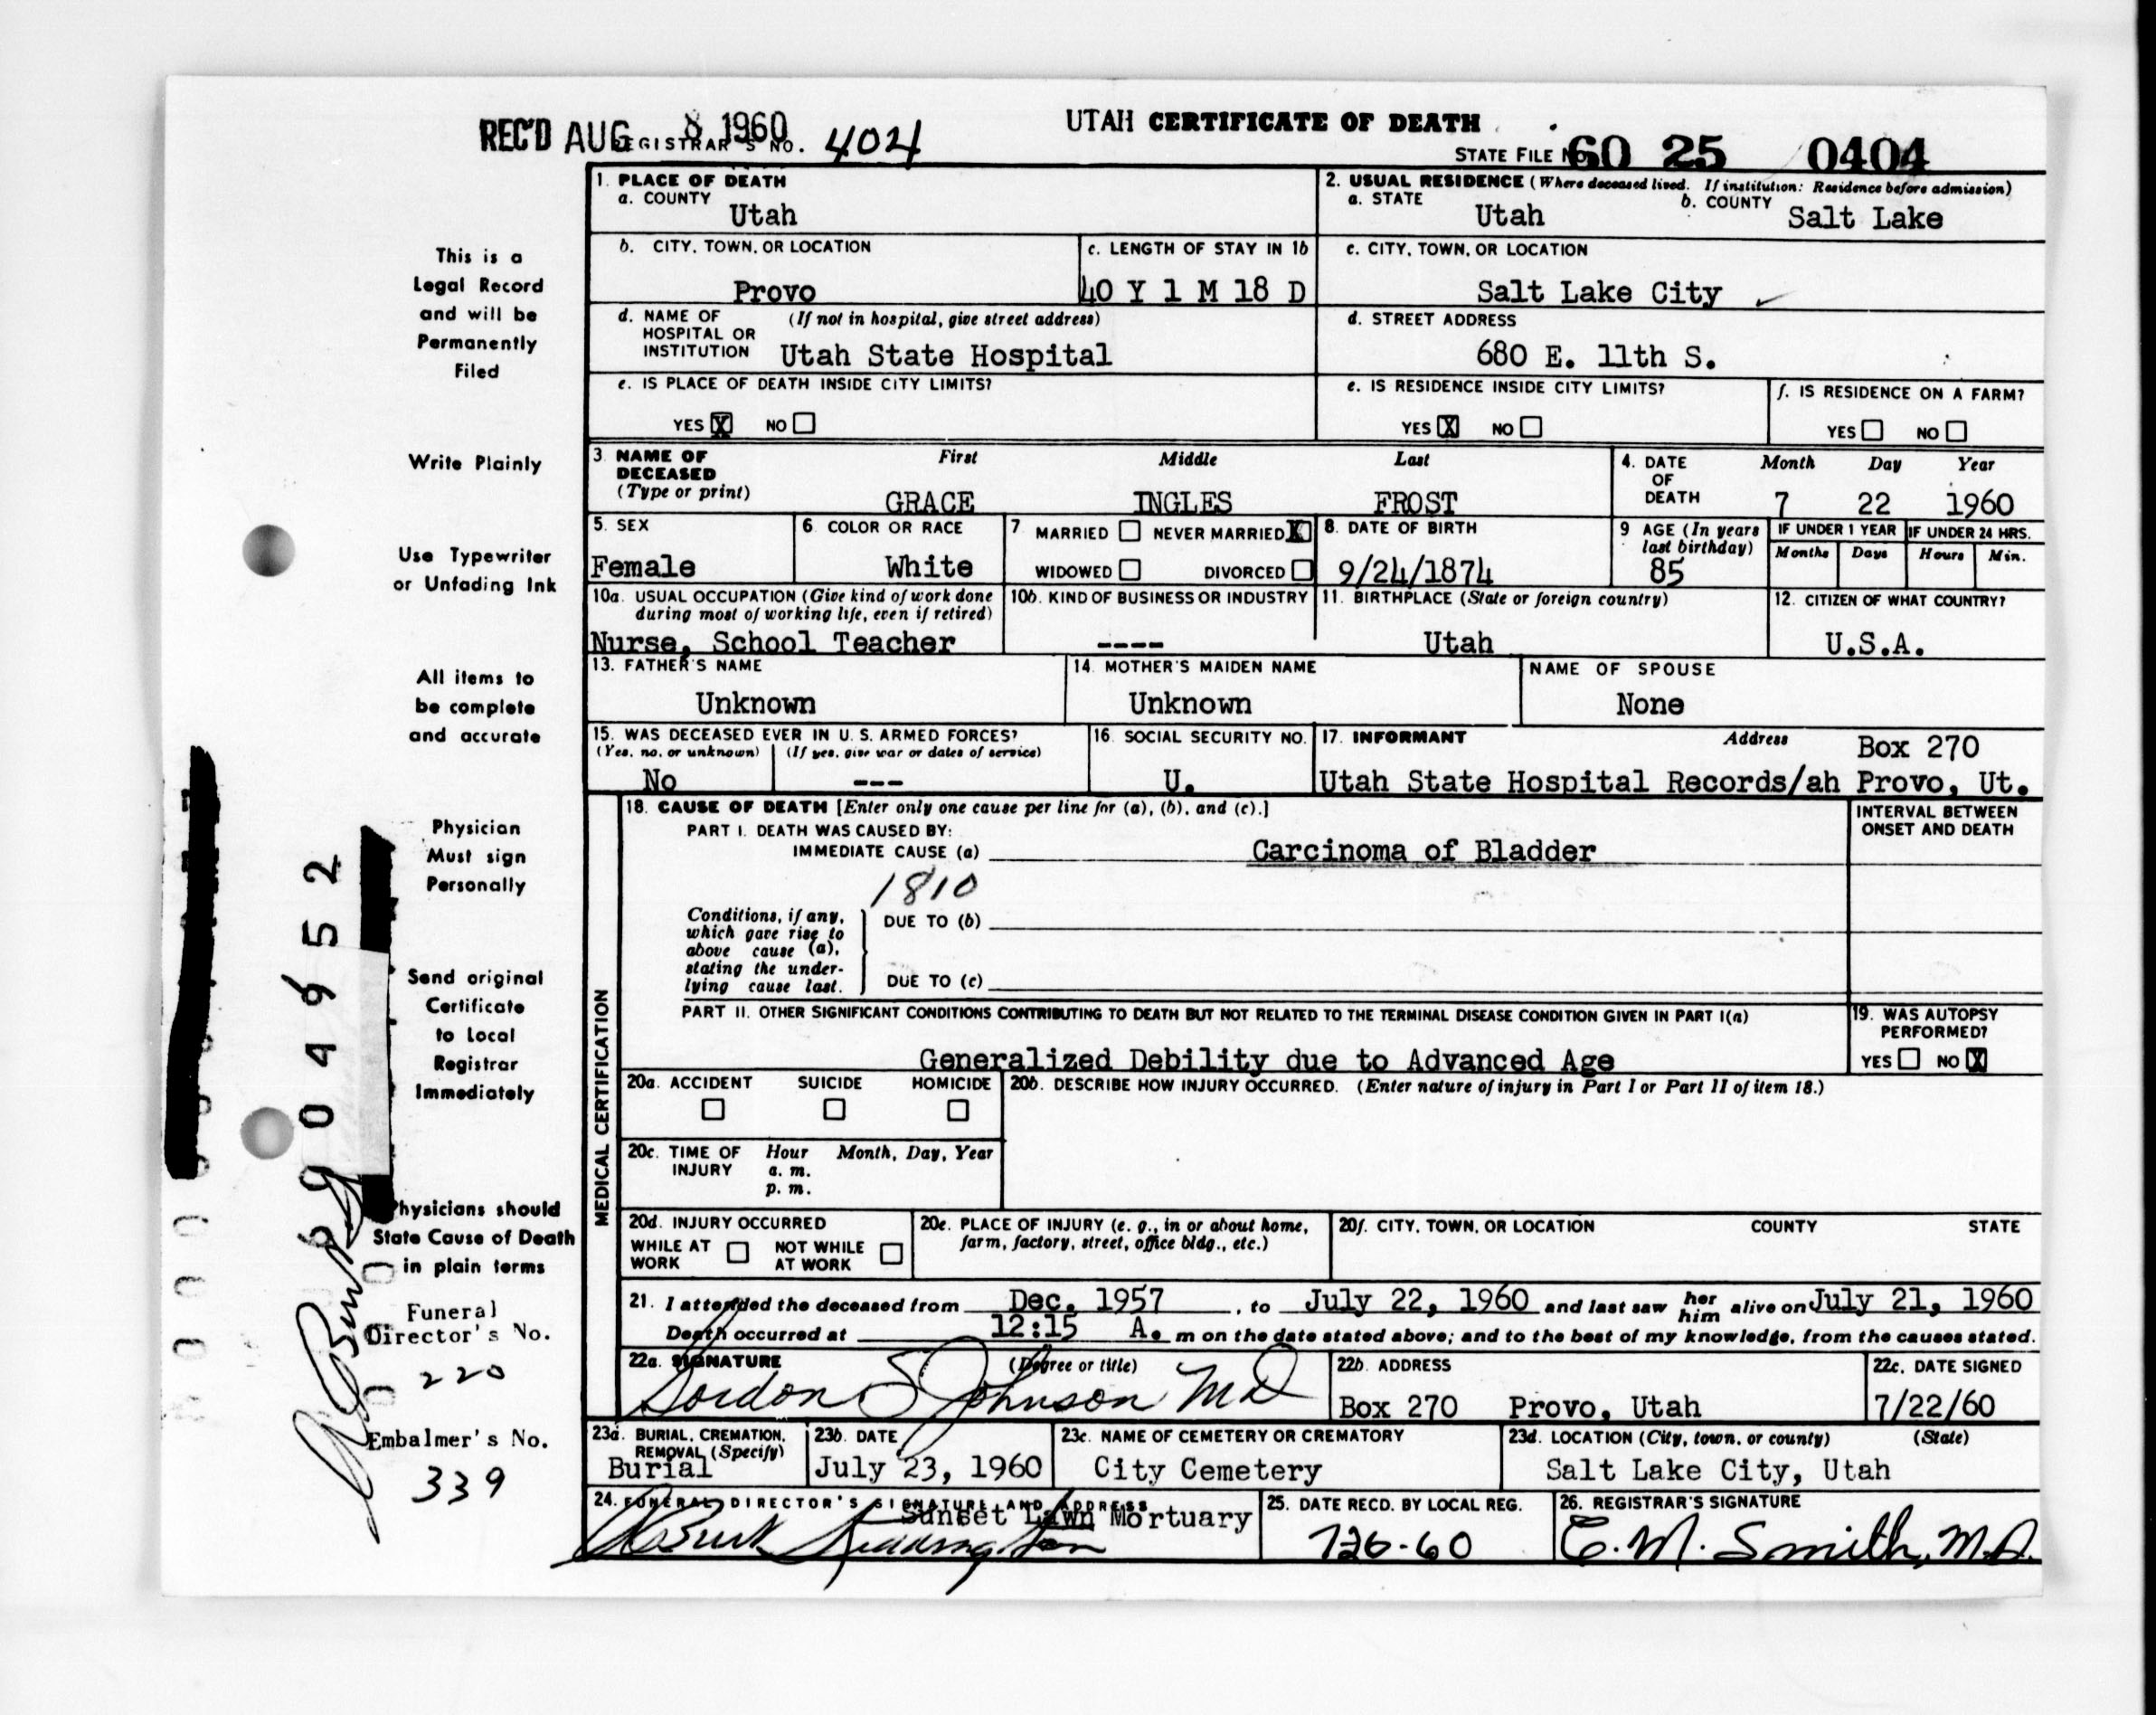 REC'D AUG 8 1960
REGISTRAR'S NO. 404
UTAH CERTIFICATE OF DEATH
STATE FILE NO. 60 25 0404
1. PLACE OF DEATH
a. COUNTY
Utah
2. USUAL RESIDENCE (Where deceased lived. If institution: Residence before admission)
a. STATE
Utah
b. COUNTY
Salt Lake
b. CITY, TOWN, OR LOCATION
Provo
c. LENGTH OF STAY IN 1b
40 Y 1 M 18 D
c. CITY, TOWN, OR LOCATION
Salt Lake City
d. NAME OF HOSPITAL OR INSTITUTION
(If not in hospital, give street address)
Utah State Hospital
d. STREET ADDRESS
680 E. 11th S.
e. IS PLACE OF DEATH INSIDE CITY LIMITS?
YES X NO
e. IS RESIDENCE INSIDE CITY LIMITS?
YES X NO
f. IS RESIDENCE ON A FARM?
YES NO
3. NAME OF DECEASED
(Type or print)
First Middle Last
GRACE INGLES FROST
4. DATE OF DEATH
Month Day Year
7 22 1960
5. SEX
Female
6. COLOR OR RACE
White
7 MARRIED NEVER MARRIED X
WIDOWED DIVORCED
8. DATE OF BIRTH
9/24/1874
9 AGE (In years last birthday)
85
IF UNDER 1 YEAR
Months Days
IF UNDER 24 HRS.
Hours Min.
10a. USUAL OCCUPATION (Give kind of work done during most of working life, even if retired)
Nurse, School Teacher
10b. KIND OF BUSINESS OR INDUSTRY
----
11. BIRTHPLACE (State or foreign country)
Utah
12. CITIZEN OF WHAT COUNTRY?
U.S.A.
13. FATHER'S NAME
Unknown
14. MOTHER'S MAIDEN NAME
Unknown
NAME OF SPOUSE
None
15. WAS DECEASED EVER IN U. S. ARMED FORCES?
(Yes, no, or unknown) (If yes, give war or dates of service)
No ---
16. SOCIAL SECURITY NO.
U.
17. INFORMANT Address
Box 270
Utah State Hospital Records/ah Provo, Ut.
MEDICAL CERTIFICATION
18. CAUSE OF DEATH [Enter only one cause per line for (a), (b), and (c).]
INTERVAL BETWEEN ONSET AND DEATH
PART I. DEATH WAS CAUSED BY:
IMMEDIATE CAUSE (a) Carcinoma of Bladder
1810
Conditions, if any, which gave rise to above cause (a), stating the underlying cause last.
DUE TO (b)
DUE TO (c)
PART II. OTHER SIGNIFICANT CONDITIONS CONTRIBUTING TO DEATH BUT NOT RELATED TO THE TERMINAL DISEASE CONDITION GIVEN IN PART I(a)
Generalized Debility due to Advanced Age
19. WAS AUTOPSY PERFORMED?
YES NO X
20a. ACCIDENT SUICIDE HOMICIDE
20b. DESCRIBE HOW INJURY OCCURRED. (Enter nature of injury in Part I or Part II of item 18.)
20c. TIME OF INJURY
Hour Month, Day, Year
a. m.
p. m.
20d. INJURY OCCURRED
WHILE AT WORK
NOT WHILE AT WORK
20e. PLACE OF INJURY (e. g., in or about home, farm, factory, street, office bldg., etc.)
20f. CITY, TOWN, OR LOCATION COUNTY STATE
21. I attended the deceased from Dec. 1957, to July 22, 1960 and last saw her him alive on July 21, 1960
Death occurred at 12:15 A. m on the date stated above; and to the best of my knowledge, from the causes stated.
22a. SIGNATURE (Degree or title)
Gordon S Johnson MD
22b. ADDRESS
Box 270 Provo, Utah
22c. DATE SIGNED
7/22/60
23a. BURIAL, CREMATION, REMOVAL (Specify)
Burial
23b. DATE
July 23, 1960
23c. NAME OF CEMETERY OR CREMATORY
City Cemetery
23d. LOCATION (City, town, or county) (State)
Salt Lake City, Utah
24. FUNERAL DIRECTOR'S SIGNATURE AND ADDRESS
Sunset Lawn Mortuary
25. DATE RECD. BY LOCAL REG.
726-60
26. REGISTRAR'S SIGNATURE
E. M. Smith, M.D.
This is a
Legal Record
and will be
Permanently
Filed
Write Plainly
Use Typewriter
or Unfading Ink
All items to
be complete
and accurate
Physician
Must sign
Personally
Send original
Certificate
to Local
Registrar
Immediately
Physicians should
State Cause of Death
in plain terms
Funeral
Director's No.
220
Embalmer's No.
339